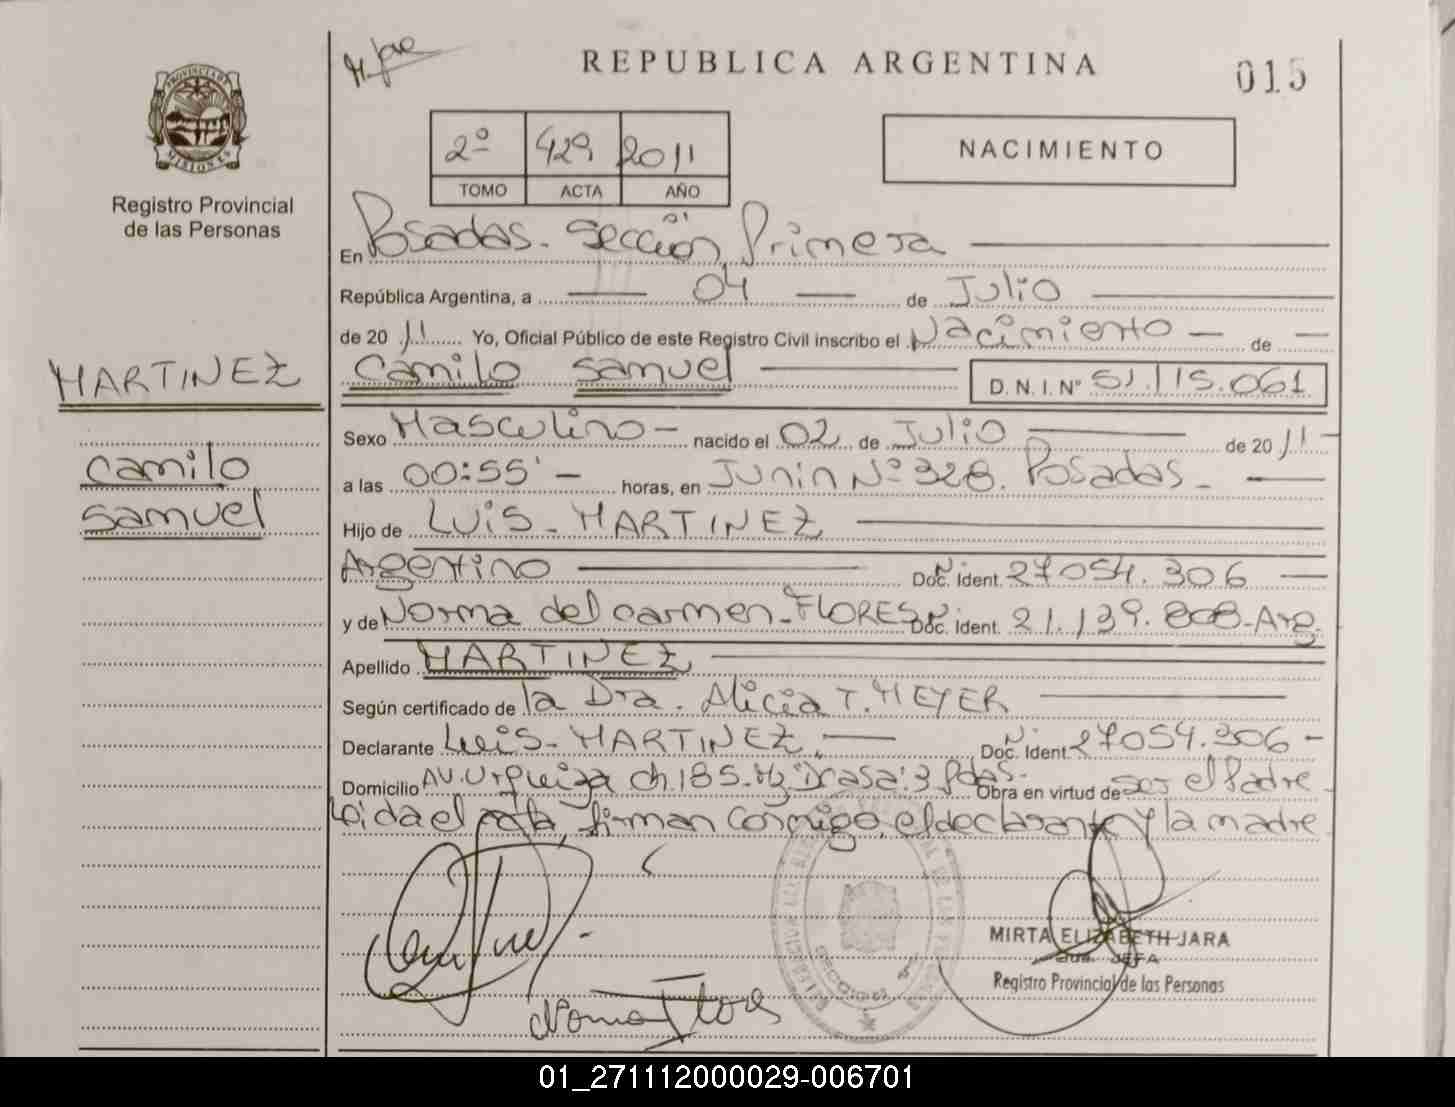 REPUBLICA ARGENTINA
015
PROVINCIA DE MISIONES
Registro Provincial
de las Personas
2º 429 2011
TOMO ACTA AÑO
NACIMIENTO
En Posadas - Sección Primera
República Argentina, a 04 de Julio
de 2011 Yo, Oficial Público de este Registro Civil inscribo el Nacimiento - de -
Camilo Samuel D. N. I. Nº 51.115.061
MARTINEZ
Camilo
Samuel
Sexo Masculino - nacido el 02 de Julio de 2011 -
a las 00:55' - horas, en Junin Nº 328. Posadas -
Hijo de Luis - MARTINEZ
Argentino Doc. Ident. 27054.306
y de Norma del carmen - FLORES Doc. Ident. 21.139.808 - Arg.
Apellido MARTINEZ
Según certificado de la Dra. Alicia T. MEYER
Declarante Luis - MARTINEZ Doc. Ident. 27054.306 -
Domicilio Av. Urquiza ch. 185 - Mz D casa: 3 Pdas - Obra en virtud de ser el Padre
Leida el acta, firman conmigo, el declarante y la madre
Norma Flores
MIRTA ELIZABETH JARA
JEFA
Registro Provincial de las Personas
01_271112000029-006701